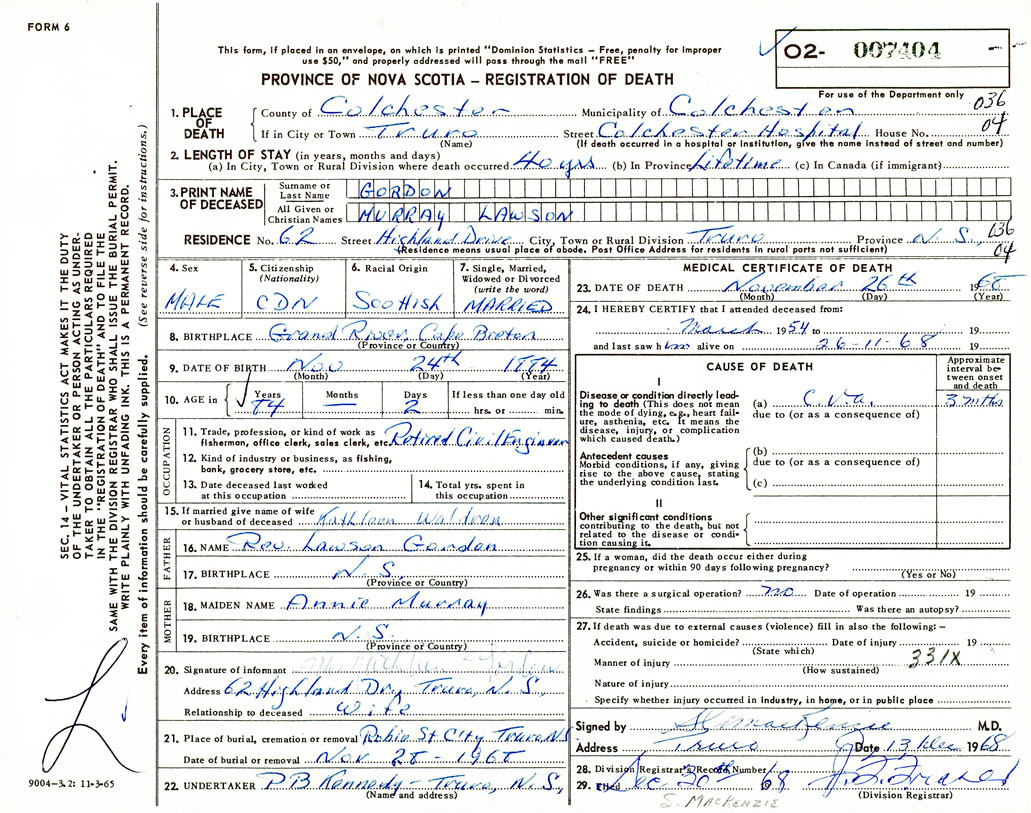 FORM 6
This form, if placed in an envelope, on which is printed "Dominion Statistics – Free, penalty for improper
use $50," and properly addressed will pass through the mail "FREE"
O2- 007404
PROVINCE OF NOVA SCOTIA – REGISTRATION OF DEATH
For use of the Department only
036
04
1. PLACE OF DEATH
County of Colchester Municipality of Colchester
If in City or Town Truro Street Colchester Hospital House No.
(Name) (If death occurred in a hospital or institution, give the name instead of street and number)
2. LENGTH OF STAY (in years, months and days)
(a) In City, Town or Rural Division where death occurred 40 yrs (b) In Province Lifetime (c) In Canada (if immigrant)
3. PRINT NAME OF DECEASED
Surname or Last Name GORDON
All Given or Christian Names MURRAY LAWSON
RESIDENCE No. 62 Street Highland Drive City, Town or Rural Division Truro Province N.S.,
036
04
(Residence means usual place of abode. Post Office Address for residents in rural parts not sufficient)
4. Sex
MALE
5. Citizenship
(Nationality)
CDN
6. Racial Origin
Scottish
7. Single, Married,
Widowed or Divorced
(write the word)
MARRIED
8. BIRTHPLACE Grand River, Cape Breton
(Province or Country)
9. DATE OF BIRTH Nov 24th 1884
(Month) (Day) (Year)
10. AGE in Years 84 Months — Days 2 If less than one day old
hrs. or min.
OCCUPATION
11. Trade, profession, or kind of work as
fisherman, office clerk, sales clerk, etc. Retired Civil Engineer
12. Kind of industry or business, as fishing,
bank, grocery store, etc.
13. Date deceased last worked
at this occupation
14. Total yrs. spent in
this occupation
15. If married give name of wife
or husband of deceased Kathleen Waldron
FATHER
16. NAME Rev. Lawson Gordon
17. BIRTHPLACE N.S.
(Province or Country)
MOTHER
18. MAIDEN NAME Annie Murray
19. BIRTHPLACE N.S.
(Province or Country)
20. Signature of informant Mrs Kathleen Gordon
Address 62 Highland Dr, Truro, N.S.,
Relationship to deceased Wife
21. Place of burial, cremation or removal Robie St City Truro, N.S
Date of burial or removal Nov 28 - 1968
22. UNDERTAKER P B Kennedy - Truro, N.S.,
(Name and address)
MEDICAL CERTIFICATE OF DEATH
23. DATE OF DEATH November 26th 1968
(Month) (Day) (Year)
24. I HEREBY CERTIFY that I attended deceased from:
March 1954 to 19
and last saw him alive on 26-11-68 19
CAUSE OF DEATH
Approximate
interval be-
tween onset
and death
I
Disease or condition directly lead-
ing to death (This does not mean
the mode of dying, e.g., heart fail-
ure, asthenia, etc. It means the
disease, injury, or complication
which caused death.)
(a) C.V.A. 3 mths
due to (or as a consequence of)
Antecedent causes
Morbid conditions, if any, giving
rise to the above cause, stating
the underlying condition last.
(b)
due to (or as a consequence of)
(c)
II
Other significant conditions
contributing to the death, but not
related to the disease or condi-
tion causing it.
25. If a woman, did the death occur either during
pregnancy or within 90 days following pregnancy?
(Yes or No)
26. Was there a surgical operation? no Date of operation 19
State findings Was there an autopsy?
27. If death was due to external causes (violence) fill in also the following: –
Accident, suicide or homicide? Date of injury 19
(State which)
Manner of injury 331X
(How sustained)
Nature of injury
Specify whether injury occurred in Industry, in home, or in public place
Signed by MacKenzie M.D.
Address Truro Date 13 Dec 1968
28. Division Registrar's Record Number
29. Filed Dec. 30th 1968
(Division Registrar)
S. MACKENZIE
SEC. 14 – VITAL STATISTICS ACT MAKES IT THE DUTY
OF THE UNDERTAKER OR PERSON ACTING AS UNDER-
TAKER TO OBTAIN ALL THE PARTICULARS REQUIRED
IN THE "REGISTRATION OF DEATH" AND TO FILE THE
SAME WITH THE DIVISION REGISTRAR WHO SHALL ISSUE THE BURIAL PERMIT.
WRITE PLAINLY WITH UNFADING INK. THIS IS A PERMANENT RECORD.
Every item of information should be carefully supplied. (See reverse side for instructions.)
9004-3.2: 11-3-65